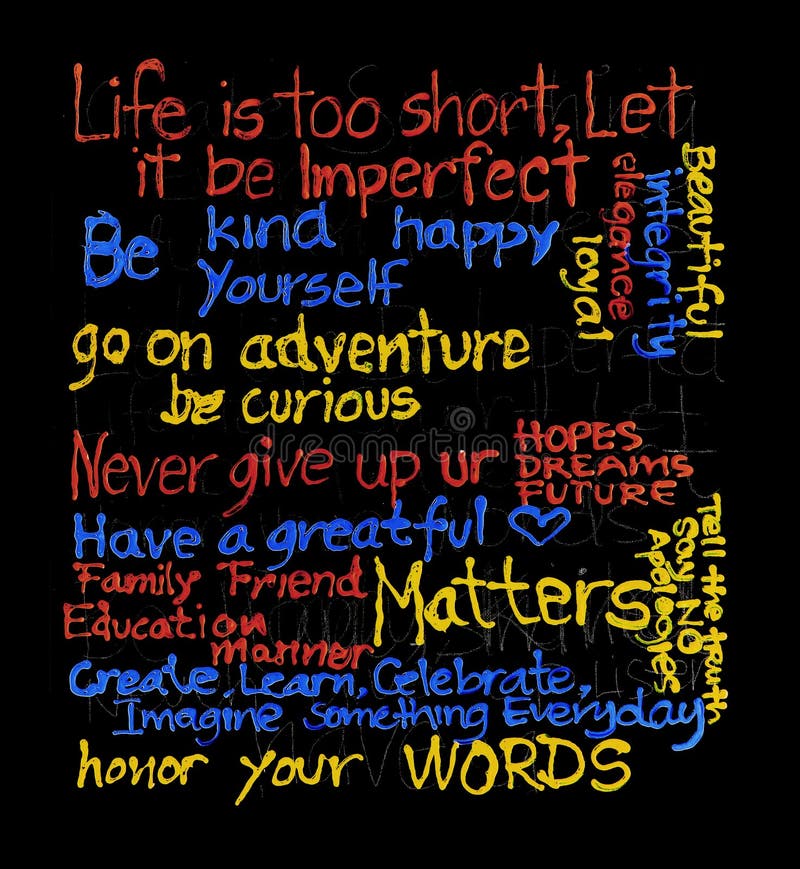 Life is too short, Let
it be Imperfect
Beautiful
integrity
elegance
loyal
Be kind happy
yourself
go on adventure
be curious
Never give up ur
HOPES
DREAMS
FUTURE
Have a greatful ♡
Family Friend
Education
manner
Matters
Tell the truth
Say NO
Apologies
Create, Learn, Celebrate,
Imagine Something Everyday
honor your WORDS
dreamstime